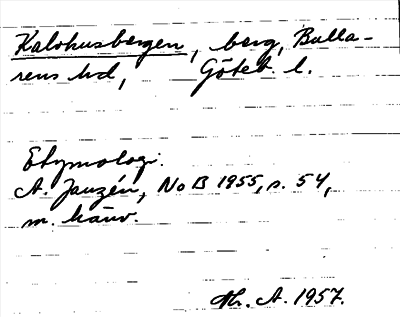 Kalvhusbergen, berg, Bulla-
rens hd, Göteb. l.
Etymologi.
A. Janzén, NoB 1955, s. 54,
m. hänv.
Th. A. 1957.